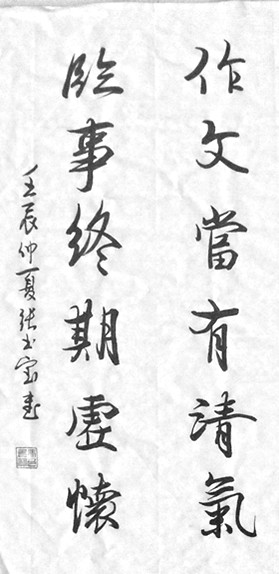 作文當有清氣
臨事終期虛懷
壬辰仲夏張士宝書